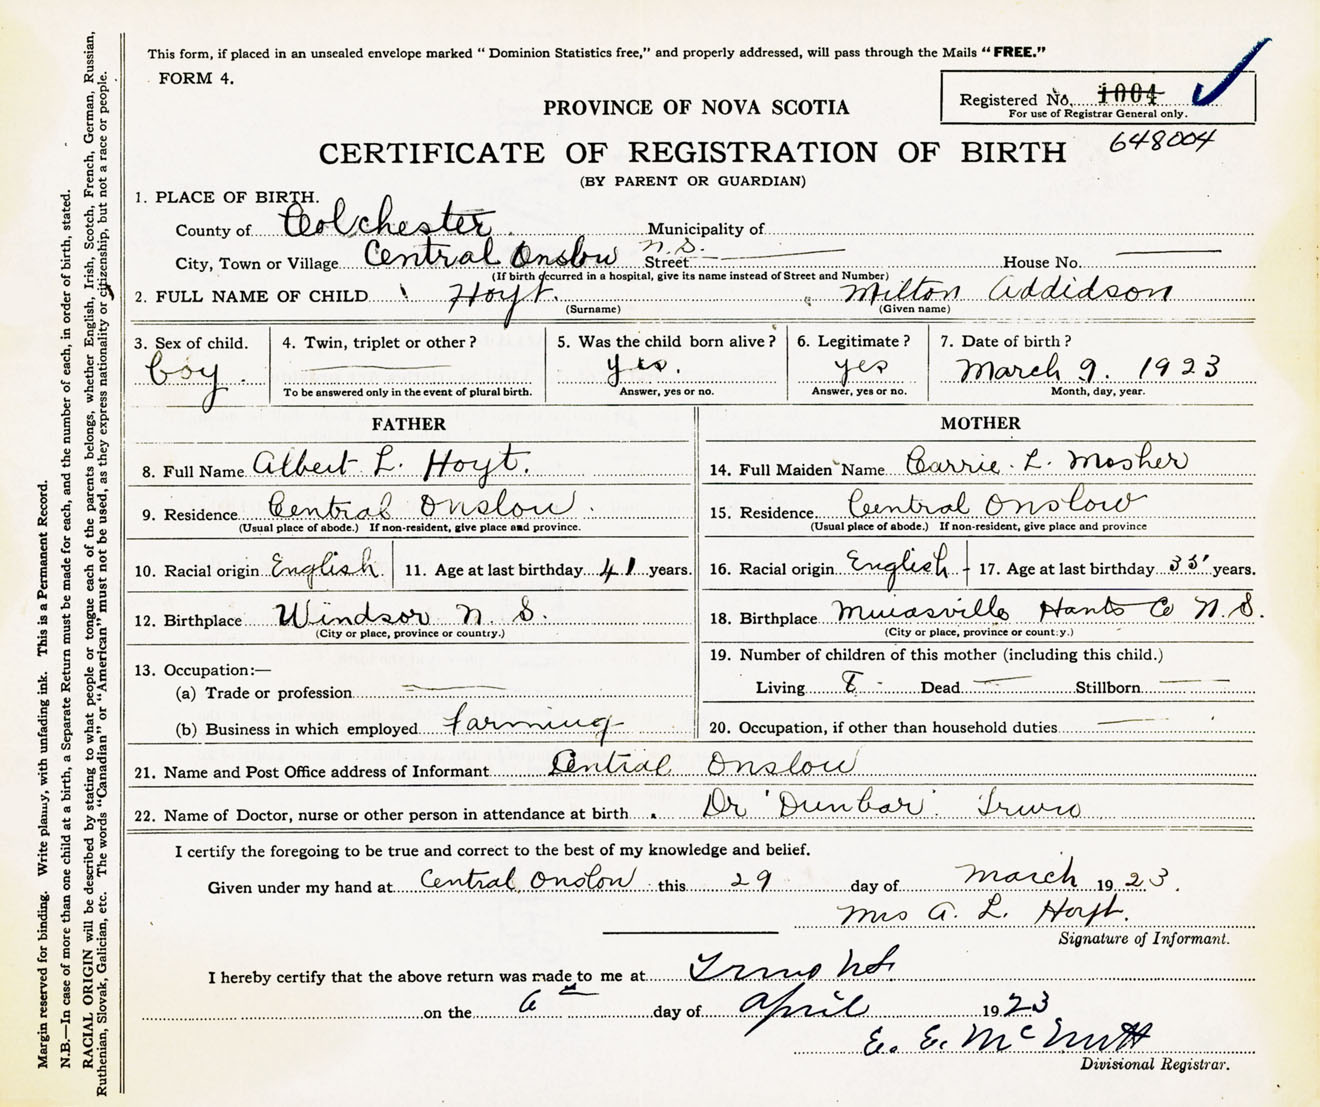 This form, if placed in an unsealed envelope marked " Dominion Statistics free," and properly addressed, will pass through the Mails "FREE."
FORM 4.
PROVINCE OF NOVA SCOTIA
Registered No. 1004
For use of Registrar General only.
648004
CERTIFICATE OF REGISTRATION OF BIRTH
(BY PARENT OR GUARDIAN)
1. PLACE OF BIRTH.
County of Colchester Municipality of
City, Town or Village Central Onslow N.S. Street House No.
(If birth occurred in a hospital, give its name instead of Street and Number)
2. FULL NAME OF CHILD Hoyt. Milton Addidson
(Surname) (Given name)
3. Sex of child. 4. Twin, triplet or other? 5. Was the child born alive? 6. Legitimate? 7. Date of birth?
boy. yes. yes March 9. 1923
To be answered only in the event of plural birth. Answer, yes or no. Answer, yes or no. Month, day, year.
FATHER
8. Full Name Albert L. Hoyt.
9. Residence Central Onslow.
(Usual place of abode.) If non-resident, give place and province.
10. Racial origin English 11. Age at last birthday 41 years.
12. Birthplace Windsor N. S.
(City or place, province or country.)
13. Occupation:—
(a) Trade or profession
(b) Business in which employed farming
MOTHER
14. Full Maiden Name Carrie. L. Mosher
15. Residence Central Onslow
(Usual place of abode.) If non-resident, give place and province
16. Racial origin English 17. Age at last birthday 35 years.
18. Birthplace Hants Co N. S.
(City or place, province or country.)
19. Number of children of this mother (including this child.)
Living 8 Dead Stillborn
20. Occupation, if other than household duties
21. Name and Post Office address of Informant Central Onslow
22. Name of Doctor, nurse or other person in attendance at birth Dr Dunbar. Truro
I certify the foregoing to be true and correct to the best of my knowledge and belief.
Given under my hand at Central Onslow this 29 day of March 1923.
Mrs A. L. Hoyt.
Signature of Informant.
I hereby certify that the above return was made to me at Truro NS
on the 6th day of April 1923
E. E. McNutt
Divisional Registrar.
Margin reserved for binding. Write plainly, with unfading ink. This is a Permanent Record.
N.B.—In case of more than one child at a birth, a Separate Return must be made for each, and the number of each, in order of birth, stated.
RACIAL ORIGIN will be described by stating to what people or tongue each of the parents belongs, whether English, Irish, Scotch, French, German, Russian,
Ruthenian, Slovak, Galician, etc. The words "Canadian" or "American" must not be used, as they express nationality or citizenship, but not a race or people.